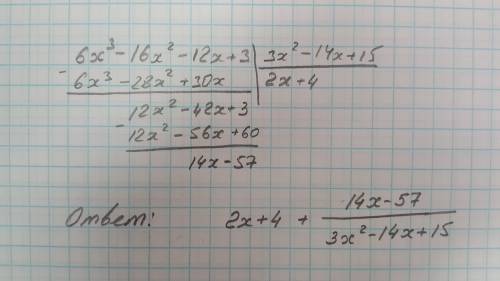 6x³ - 16x² - 12x + 3 | 3x² - 14x + 15
- 6x³ - 28x² + 30x | 2x + 4
12x² - 42x + 3
- 12x² - 56x + 60
14x - 57
Ответ: 2x + 4 + (14x - 57)/(3x² - 14x + 15)